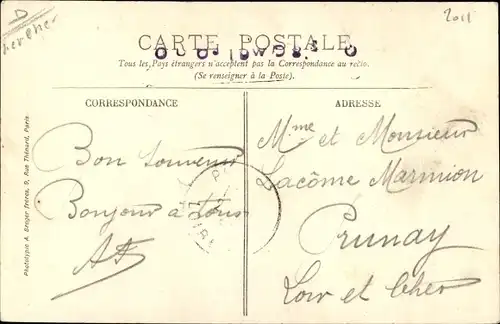 2011
CARTE POSTALE
Tous les Pays étrangers n'acceptent pas la Correspondance au recto.
(Se renseigner à la Poste).
CORRESPONDANCE
ADRESSE
Bon souvenir
Bonjour à tous
Mme et Monsieur
Lacôme Marmion
Prunay
Loir et Cher
Phototypie A. Breger Frères, 9, Rue Thénard, Paris